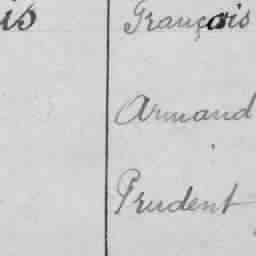 is Français
Armand
Prudent